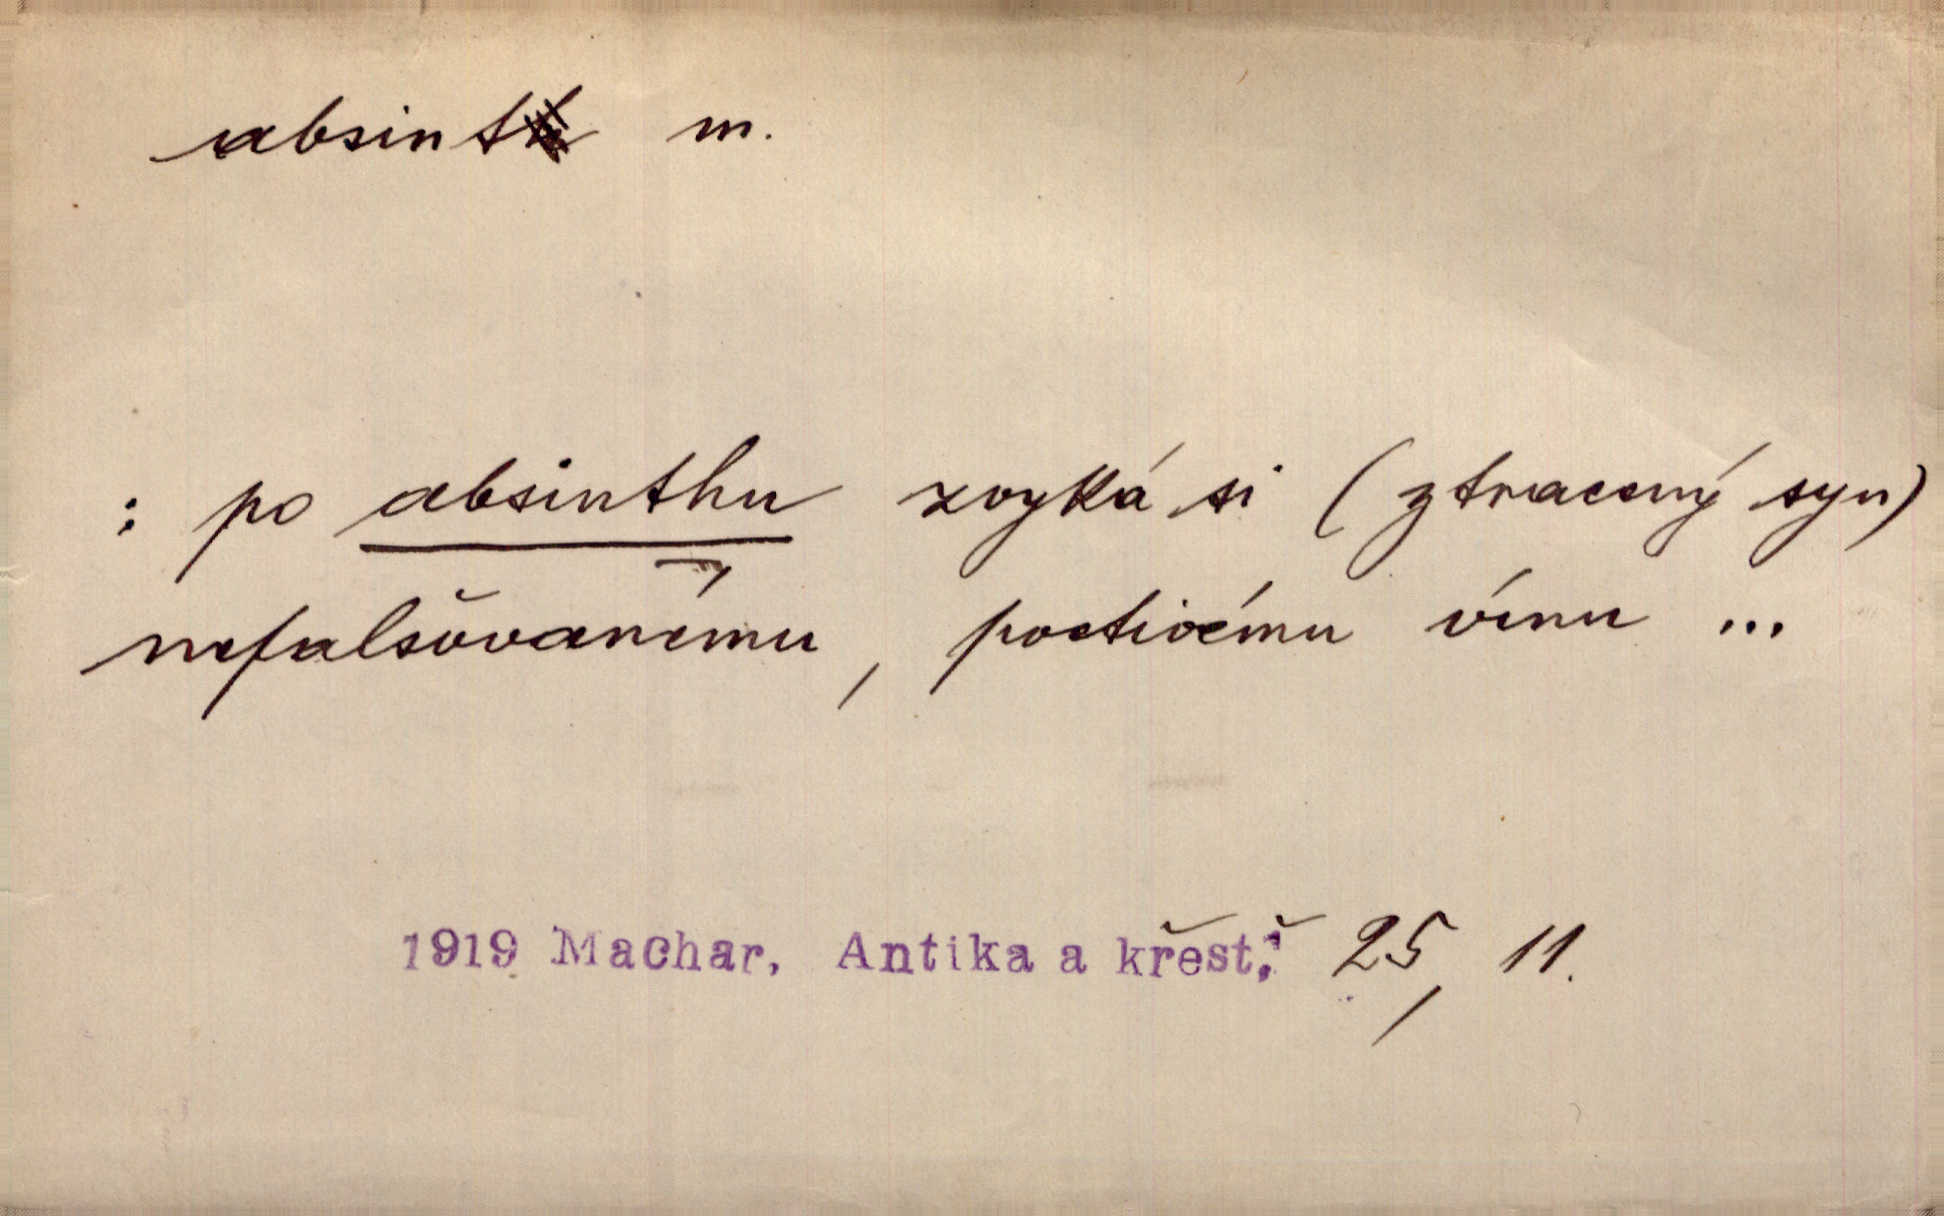 absint m.
: po absinthu zvyká si (ztracený syn)
nefalšovanému, poctivému vínu ...
1919 Machar, Antika a křest. 25, 11.